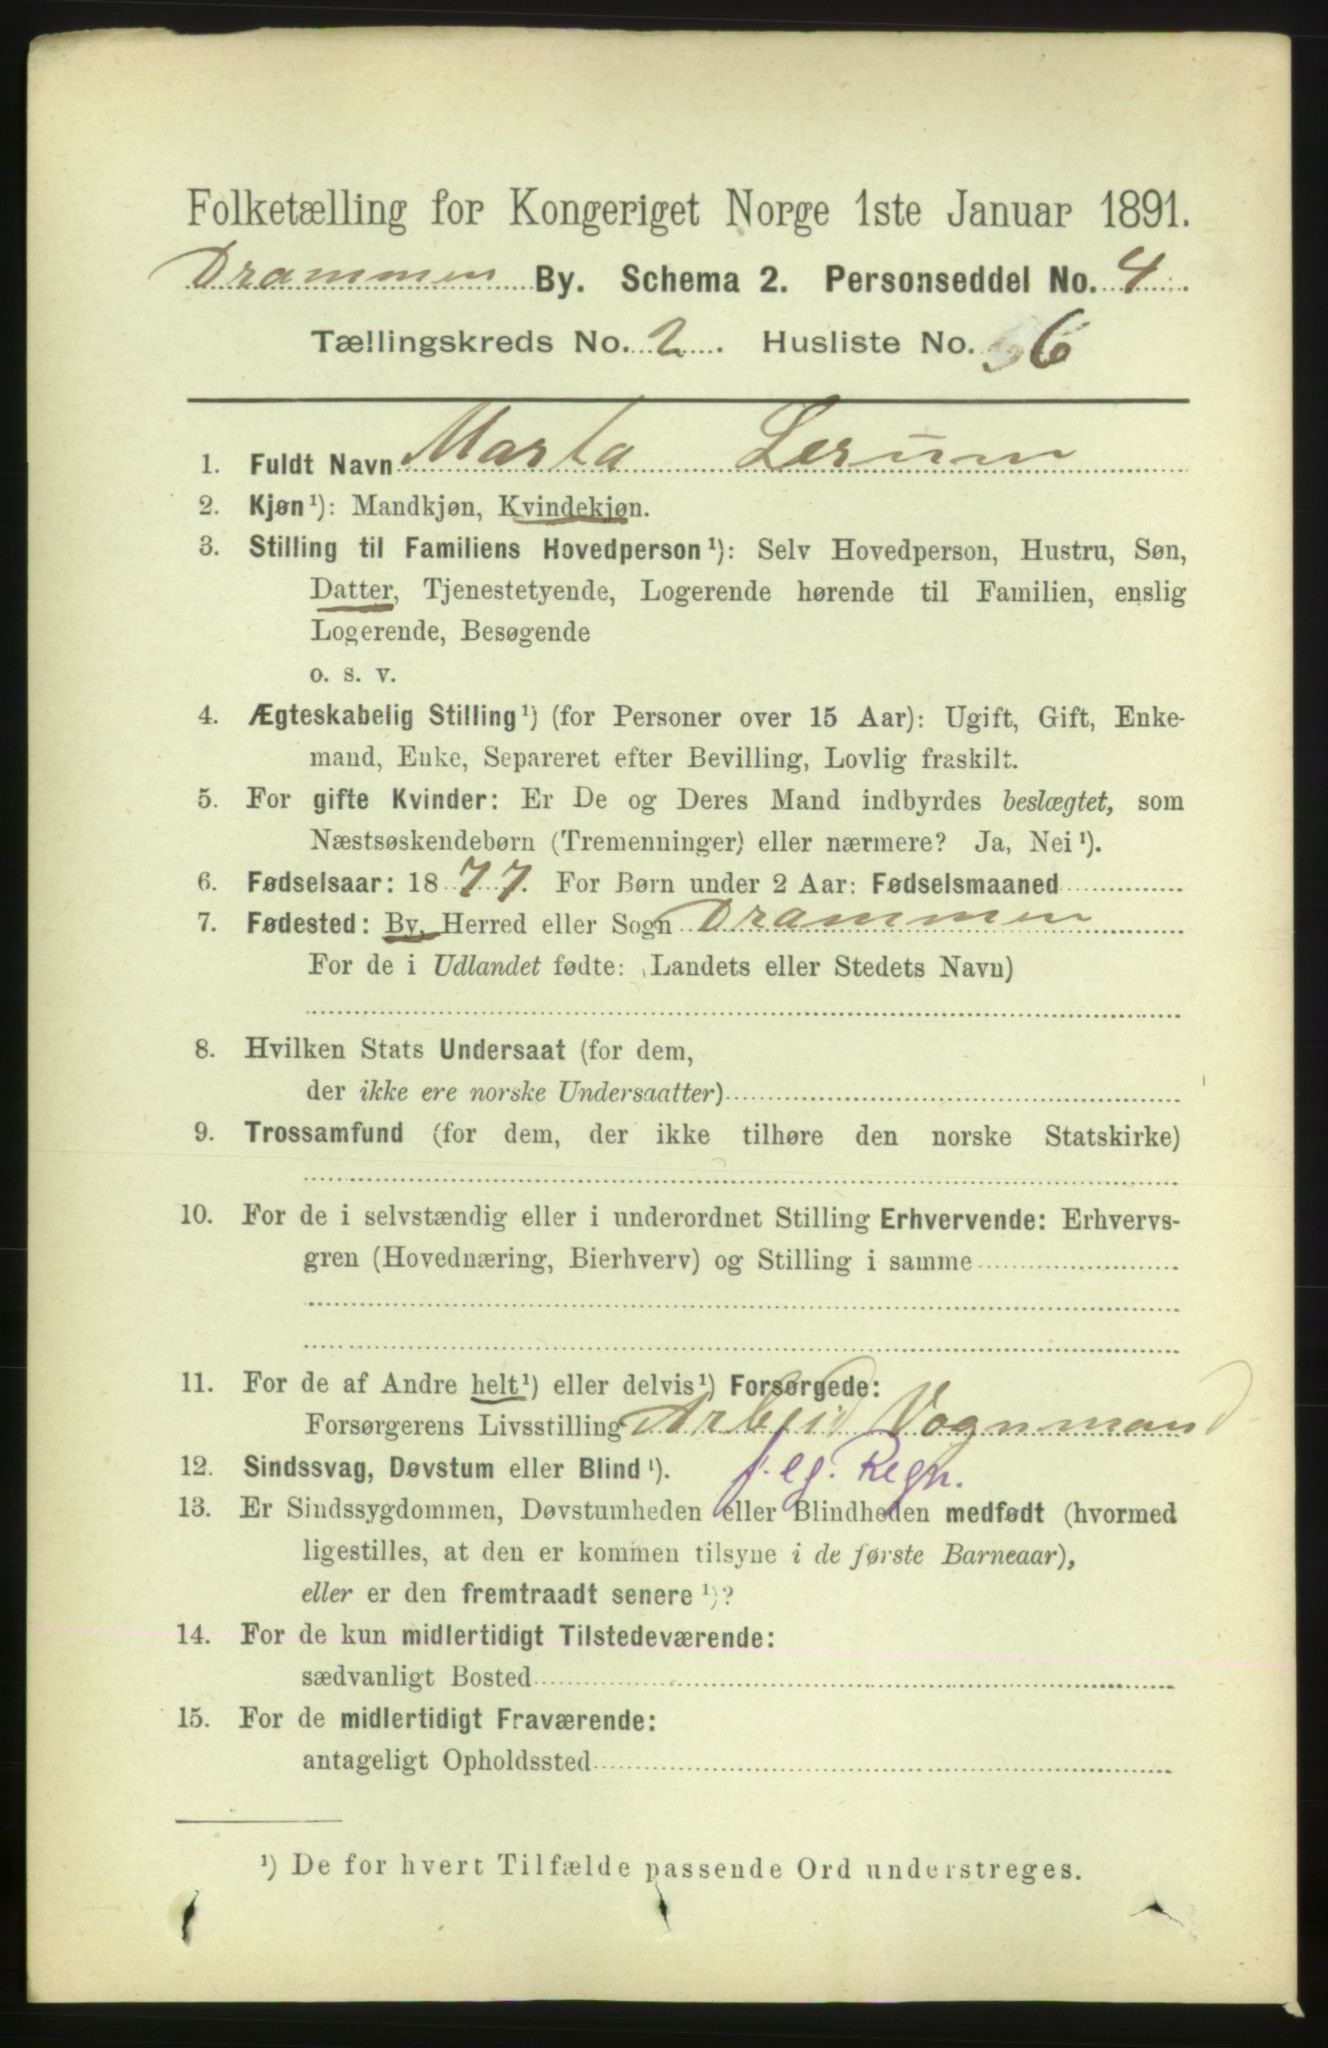 Folketælling for Kongeriget Norge 1ste Januar 1891.
Drammen By. Schema 2. Personseddel No. 4.
Tællingskreds No. 2. Husliste No. 6
1. Fuldt Navn Marta Lerum
2. Kjøn¹): Mandkjøn, Kvindekjøn.
3. Stilling til Familiens Hovedperson¹): Selv Hovedperson, Hustru, Søn,
Datter, Tjenestetyende, Logerende hørende til Familien, enslig
Logerende, Besøgende
o. s. v.
4. Ægteskabelig Stilling¹) (for Personer over 15 Aar): Ugift, Gift, Enke-
mand, Enke, Separeret efter Bevilling, Lovlig fraskilt.
5. For gifte Kvinder: Er De og Deres Mand indbyrdes beslægtet, som
Næstsøskendebørn (Tremenninger) eller nærmere? Ja, Nei¹).
6. Fødselsaar: 1877. For Børn under 2 Aar: Fødselsmaaned
7. Fødested: By, Herred eller Sogn Drammen
For de i Udlandet fødte: (Landets eller Stedets Navn)
8. Hvilken Stats Undersaat (for dem,
der ikke ere norske Undersaatter)
9. Trossamfund (for dem, der ikke tilhøre den norske Statskirke)
10. For de i selvstændig eller i underordnet Stilling Erhvervende: Erhvervs-
gren (Hovednæring, Bierhverv) og Stilling i samme
11. For de af Andre helt¹) eller delvis¹) Forsørgede:
Forsørgerens Livsstilling Arbeid Vognmand
12. Sindssvag, Døvstum eller Blind¹). f. eg. Regn.
13. Er Sindssygdommen, Døvstumheden eller Blindheden medfødt (hvormed
ligestilles, at den er kommen tilsyne i de første Barneaar),
eller er den fremtraadt senere¹)?
14. For de kun midlertidigt Tilstedeværende:
sædvanligt Bosted
15. For de midlertidigt Fraværende:
antageligt Opholdssted
¹) De for hvert Tilfælde passende Ord understreges.